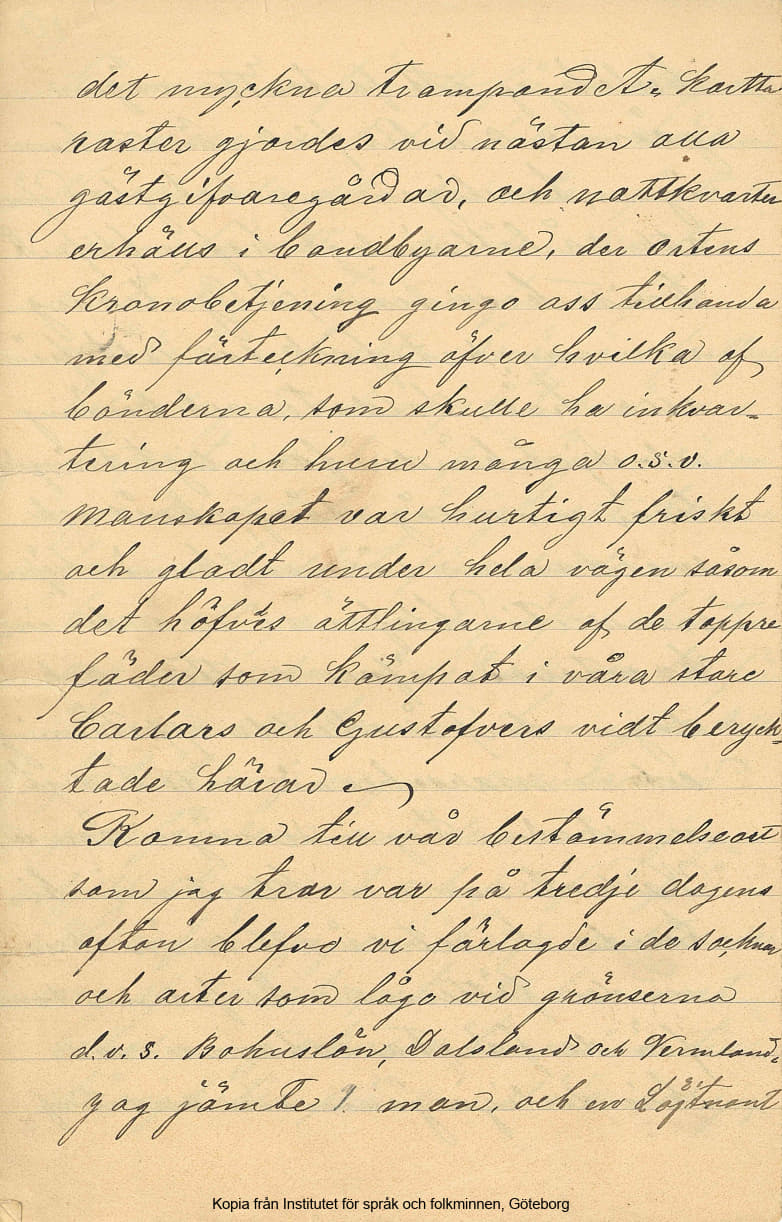 det myckna trampandet. Kortta
raster gjordes vid nästan alla
gästgifvaregårdar, och nattkvarter
erhålls i bondbyarne, der ortens
Kronobetjening gingo oss tillhanda
med förteckning öfver hvilka af
bönderna, som skulle ha inkvar-
tering och huru många o.s.v.
Manskapet var hurtigt friskt
och gladt under hela vägen såsom
det höfves ättlingarne af de tappre
fäder som kämpat i våra store
Carlars och Gustafvers vidt beryck-
tade härar
Komna till vår bestämmelseort
som jag tror var på tredje dagens
afton blefvo vi förlagde i de socknar
och orter som lågo vid gränserna
d.v.s. Bohuslän, Dalsland och Vermland.
Jag jämte 9. man, och en Löjtnant
Kopia från Institutet för språk och folkminnen, Göteborg